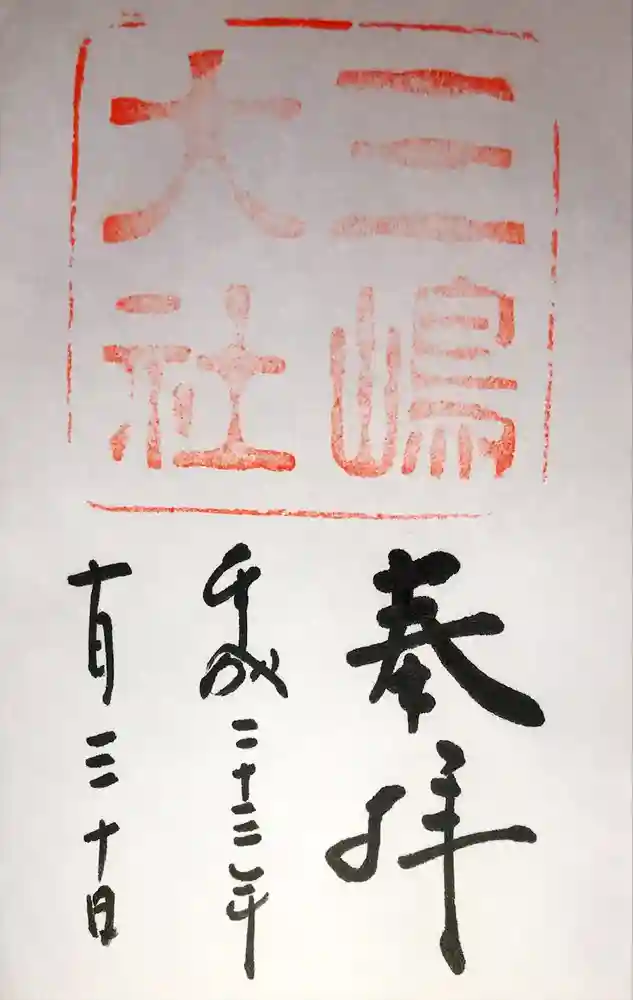 三嶋
大社
奉拝
平成二十三年
一月三十日